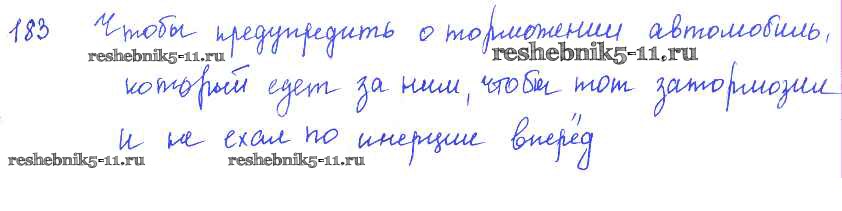 183 Чтобы предупредить о торможении автомобиль,
reshebnik5-11.ru reshebnik5-11.ru
который едет за ним, чтобы тот затормозил
и не ехал по инерции вперёд
reshebnik5-11.ru reshebnik5-11.ru